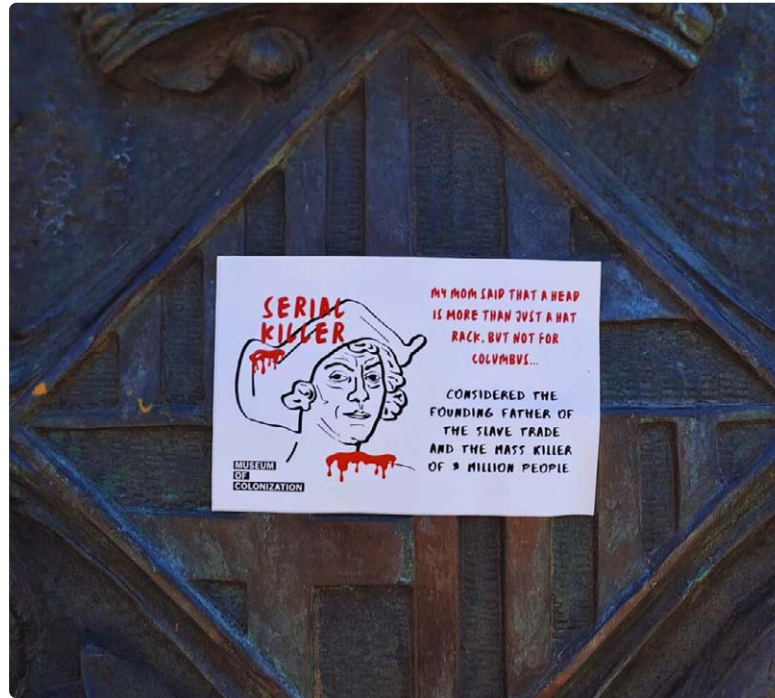 SERIAL
KILLER
MUSEUM
OF
COLONIZATION
MY MOM SAID THAT A HEAD
IS MORE THAN JUST A HAT
RACK, BUT NOT FOR
COLUMBUS...
CONSIDERED THE
FOUNDING FATHER OF
THE SLAVE TRADE
AND THE MASS KILLER
OF 8 MILLION PEOPLE